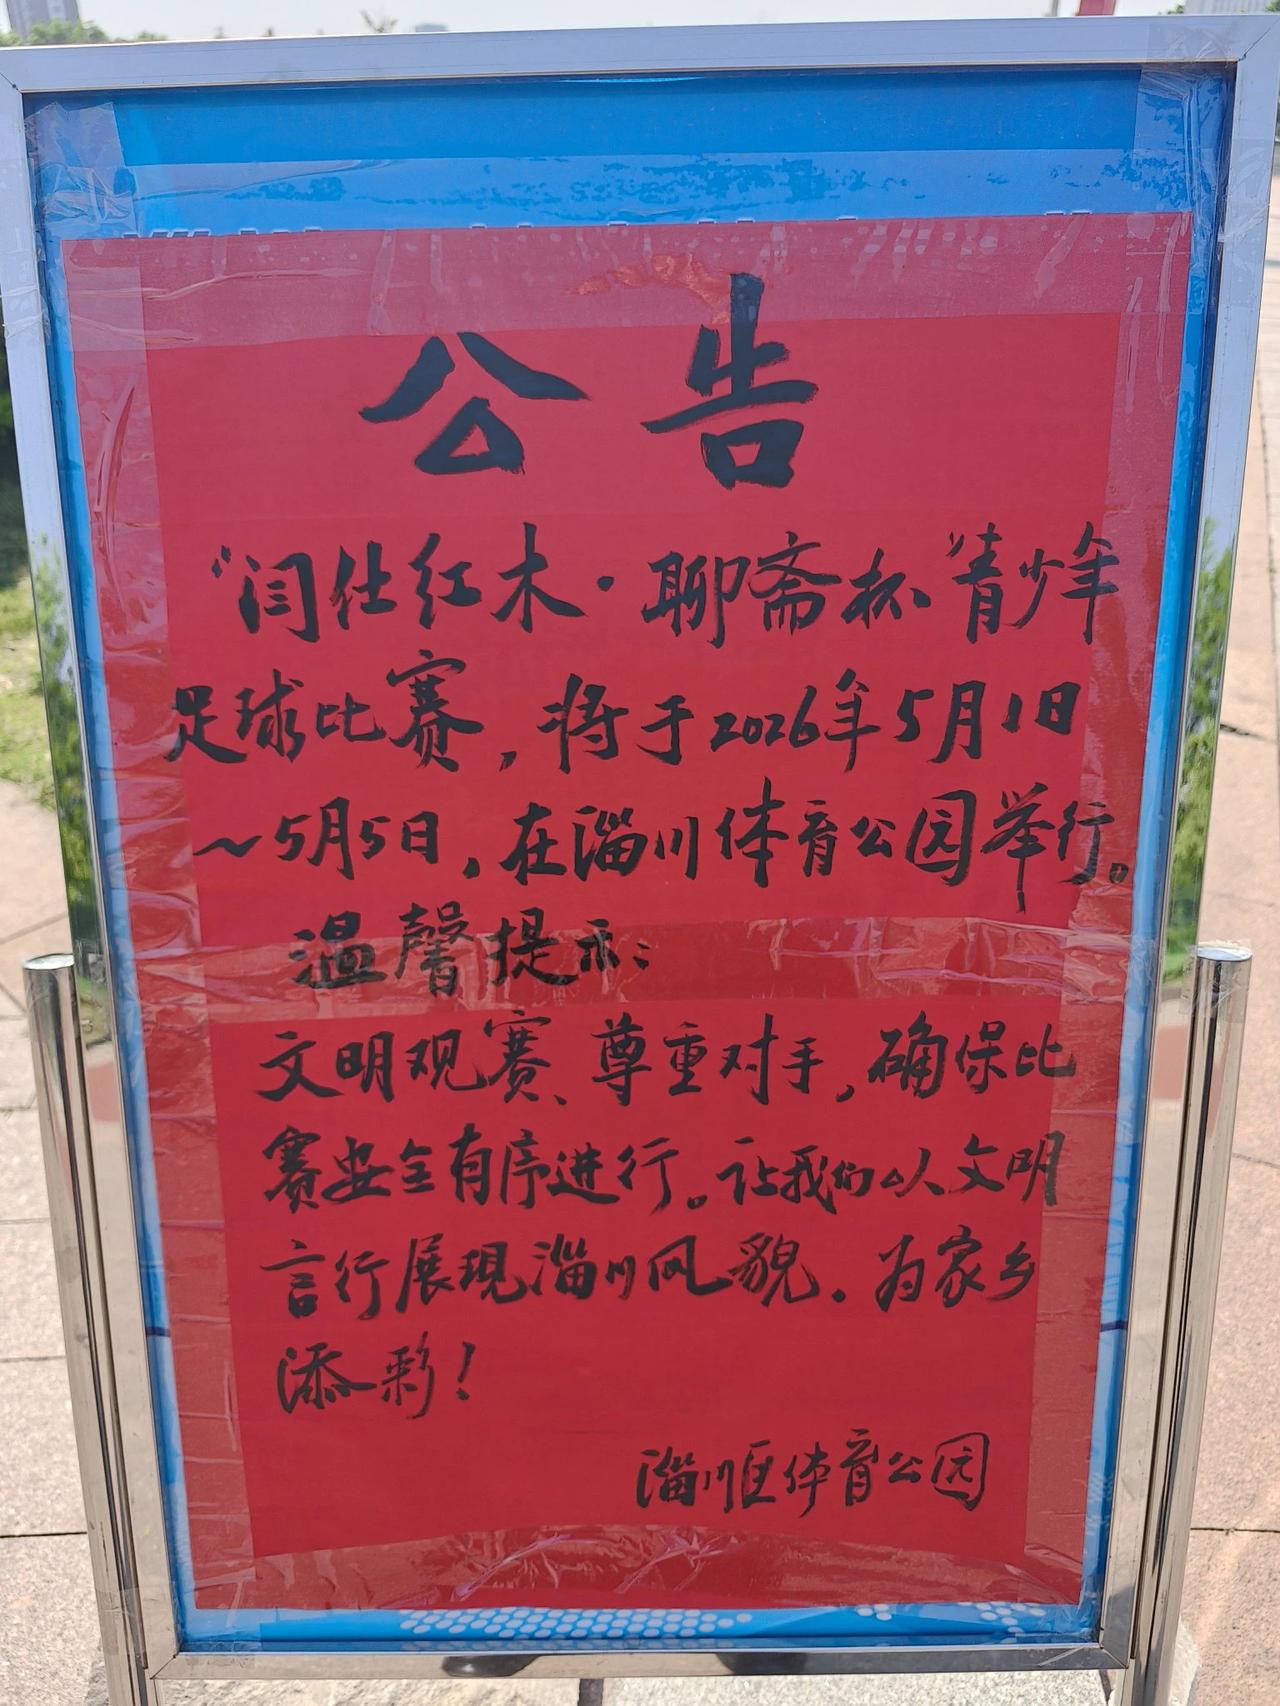 公告
“闫仕红木·聊斋杯”青少年
足球比赛，将于2026年5月1日
～5月5日，在淄川体育公园举行。
温馨提示：
文明观赛、尊重对手，确保比
赛安全有序进行。让我们以文明
言行展现淄川风貌．为家乡
添彩！
淄川区体育公园